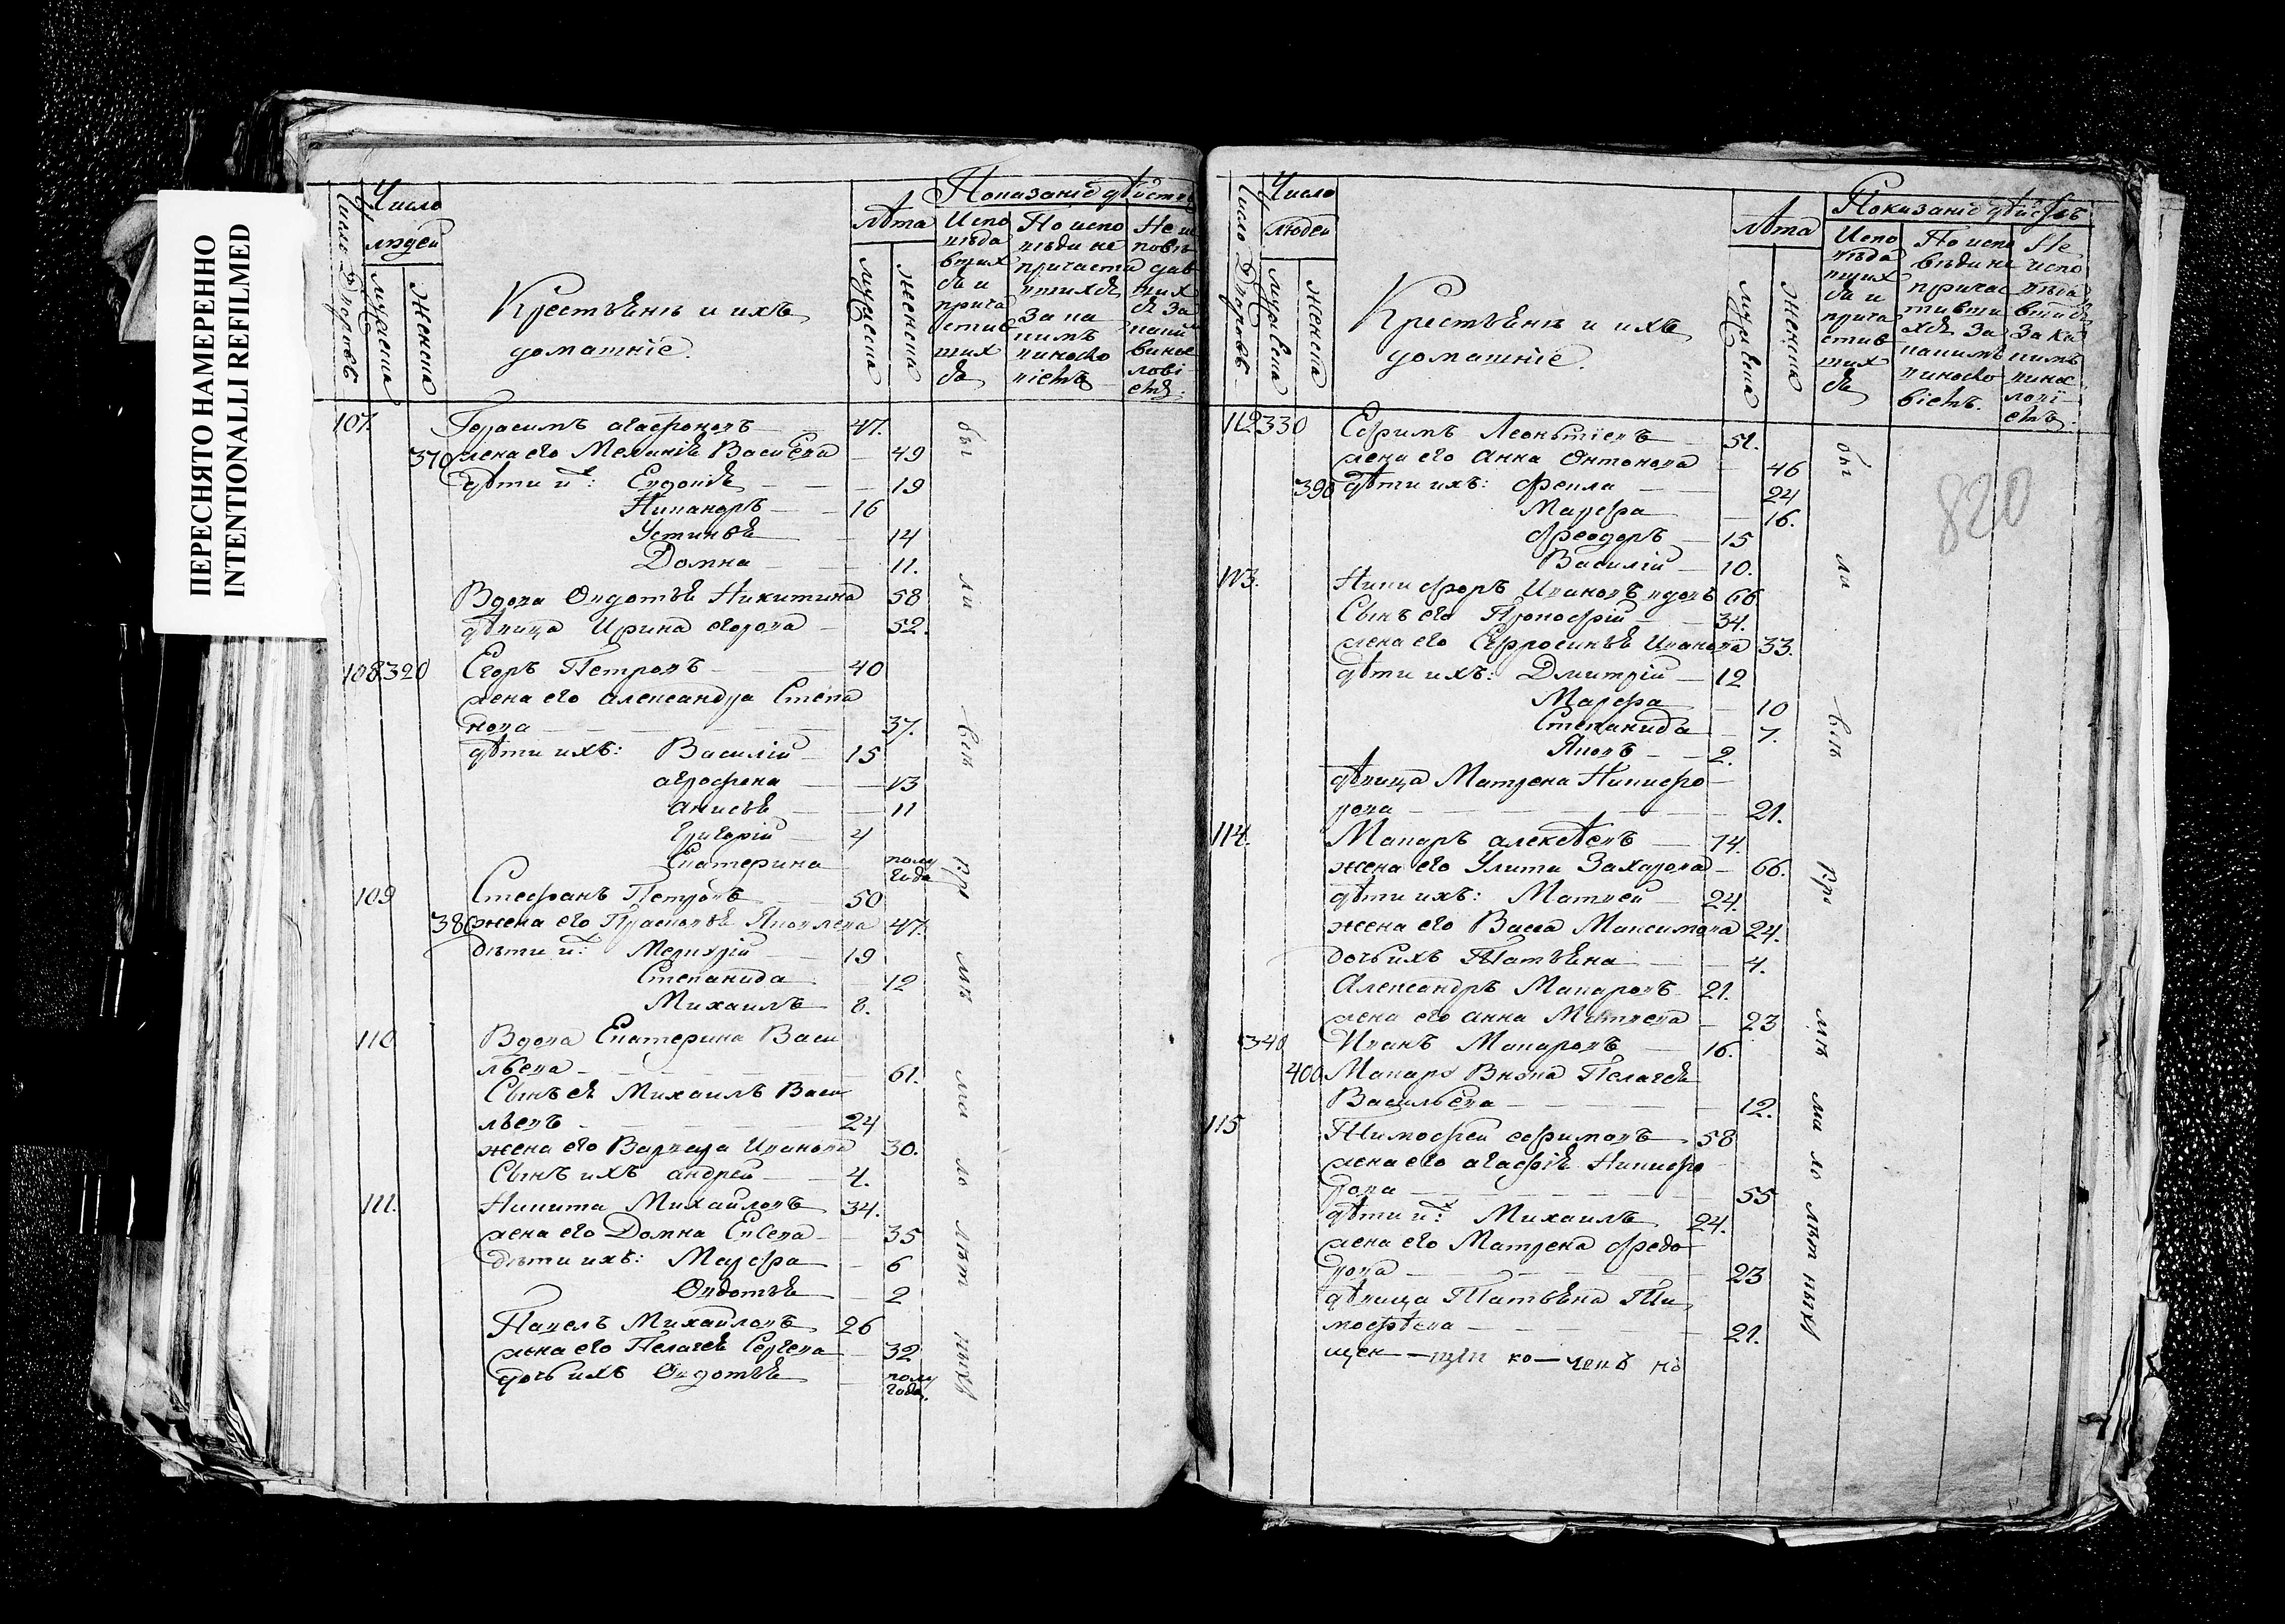 ПЕРЕСНЯТО НАМЕРЕННО
INTENTIONALLI REFILMED
Число Дворовъ
Число
людей
мужеска
женска
Крестьянъ и ихъ
домашніе.
Лѣта
мужеска
женска
Показаніе дѣйств
Испо
вѣда
вших
ся и
прича
стив
ших
ся
По испо
вѣди не
причасти
вшихся
За ка
кимъ
виносло
віемъ
Не ис
повѣ
дав
ших
ся За
каким
винос
лові
емъ.
107. Герасимъ Агафоновъ 47.
370 жена его Меланія Васильева 49
дѣти ихъ: Евдокія 19
Никандръ 16
Устинья 14
Домна 11.
Вдова Овдотья Никитина 58
дѣвица Ирина Егорова 52.
108 320 Егоръ Петровъ 40
жена его Александра Степа
нова 37.
дѣти ихъ: Василій 15
Агрофена 13
Анисья 11
Григорій 4
Екатерина полу года
109 Стефанъ Петровъ 50
380 жена его Прасковья Яковлева 47.
дѣти ихъ: Меркурій 19
Степанида 12
Михаилъ 8.
110 Вдова Екатерина Васи
льева 61.
Сынъ ея Михаилъ Васи
льевъ 24
жена его Варвара Иванова 30.
Сынъ ихъ Андрей 4.
111. Никита Михайловъ 34.
жена его Домна Евсева 35
дѣти ихъ: Марфа 6
Овдотья 2
Павелъ Михайловъ 26
жена его Пелагея Сергева 32
дочь ихъ Овдотья полу года.
бы
ли
всѣ
кро
мѣ
ма
ло
лѣт
ныхъ
Число Дворовъ
Число
людей
мужеска
женска
Крестьянъ и ихъ
домашніе.
Лѣта
мужеска
женска
Показаніе дѣйствъ
Испо
вѣда
вших
ся и
прича
стив
ших
ся
По испо
вѣди не
причас
тивши
хся За
какимъ
виносло
віемъ.
Не
испо
вѣда
вшихся
За ка
кимъ
винос
лові
емъ.
820
112 330 Ефимъ Леонтіевъ 51.
жена его Анна Онтонова 46
390 дѣти ихъ: Фекла 24
Марфа 16.
Феодоръ 15
Василій 10.
113. Никифоръ Ивановъ вдовъ 66
Сынъ его Прокофій 34.
жена его Ефросинья Иванова 33.
дѣти ихъ: Дмитрій 12
Марфа 10
Степанида 7.
Яковъ 2.
дѣвица Матрена Никифо
рова 21.
114. Макаръ Алексѣевъ 74.
жена его Улита Захарова 66.
дѣти ихъ: Матвей 24.
жена его Васса Максимова 24.
дочь ихъ Татьяна 4.
Александръ Макаровъ 21.
жена его Анна Матвева 23
340 Иванъ Макаровъ 16.
400 Макара Внука Пелагея
Васильева 12.
115 Тимофей Ефимовъ 58
жена его Агафія Никифо
рова 55
дѣти ихъ: Михаилъ 24.
жена его Матрена Федо
рова 23
дѣвица Татьяна Ти
мофѣева 21.
бы
ли
всѣ
кро
мѣ
ма
ло
лѣт
ныхъ